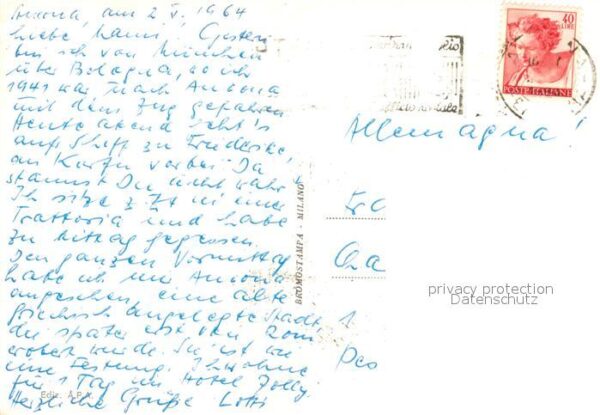 Ancona, am 2. V. 1964
Liebe Mami! Gestern
bin ich von München
über Bologna, wo ich
1941 war nach Ancona
mit dem Zug gefahren
Heute abend geht's
aufs Schiff zu Friederike,
an Korfu vorbei. Da
staunst Du nicht wahr?
Ich sitze z. Zt in einer
Trattoria und habe
zu Mittag gegessen.
Den ganzen Vormittag
habe ich mir Ancona
angesehen, eine alte
griechisch angelegte Stadt,
die später erst von Rom
erobert wurde. Sie ist wie
eine Festung. Ich wohne
für 1 Tag im Hotel Jolly.
Herzliche Grüße Lotti
Ediz. A.P.A.
BROMOSTAMPA - MILANO
40
LIRE
POSTE ITALIANE
Allemagna!
Fr
1
privacy protection
Datenschutz